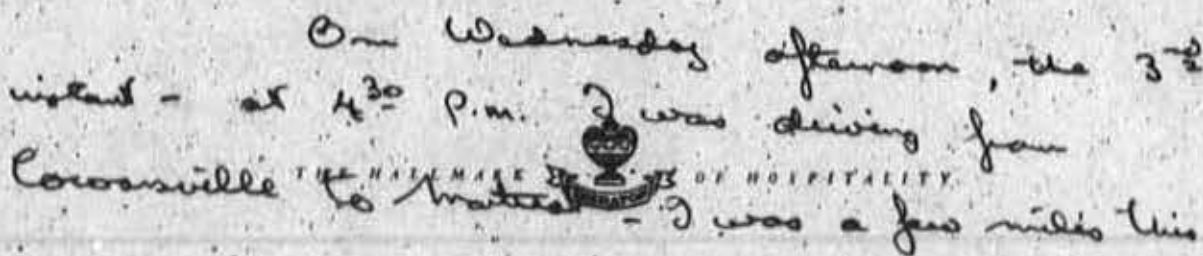 On Wednesday afternoon, the 3rd
instant - at 4 30 P.m. I was driving from
Cowansville to Montreal - I was a few miles this
THE HALLMARK OF HOSPITALITY
SHERATON